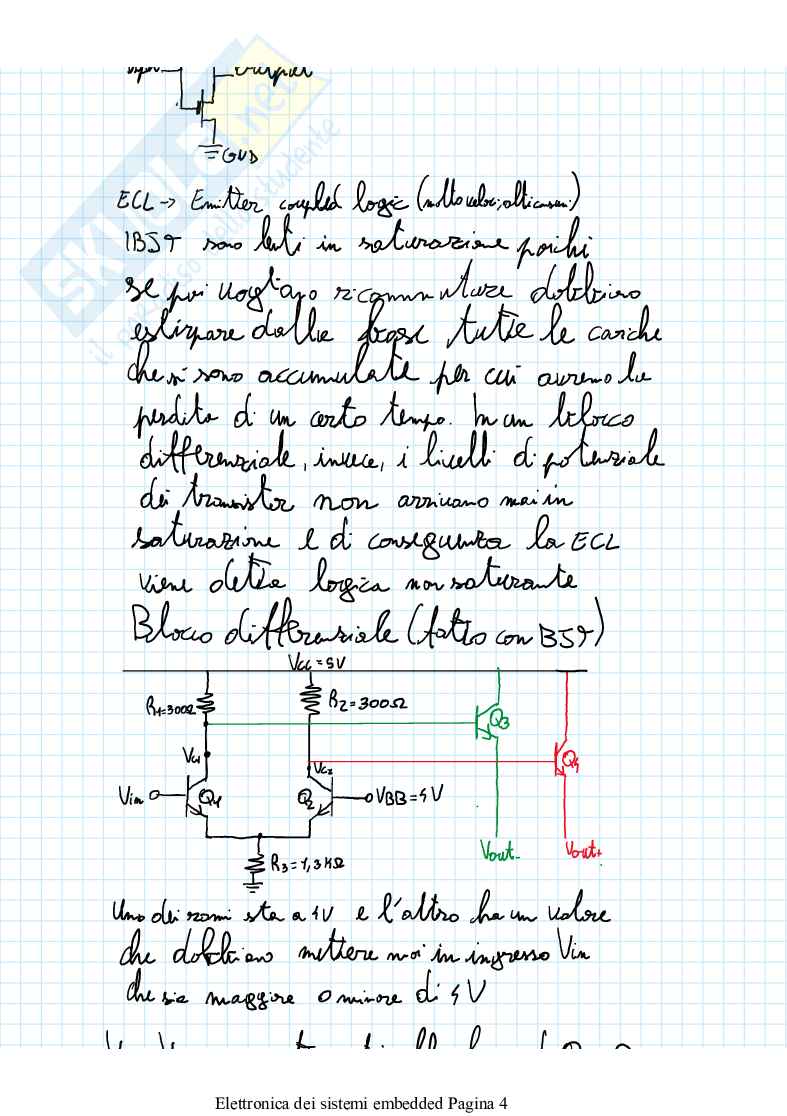 GND
ECL → Emitter coupled logic (molto veloci, alti consumi)
I BJT sono lenti in saturazione poichè
se poi vogliamo ricommutare dobbiamo
estirpare dalla base tutte le cariche
che si sono accumulate per cui avremo la
perdita di un certo tempo. In un blocco
differenziale, invece, i livelli di potenziale
dei transistor non arrivano mai in
saturazione e di conseguenza la ECL
viene detta logica non saturante
Blocco differenziale (fatto con BJT)
Vcc = 5V
R1=300Ω
R2=300Ω
Q3
Vc1
Vc2
Q4
Vin
Q1
Q2
VBB=4V
Vout-
Vout+
R3=1,3KΩ
Uno dei rami sta a 4V e l'altro ha un valore
che dobbiamo mettere noi in ingresso Vin
che sia maggiore o minore di 4V
Elettronica dei sistemi embedded Pagina 4
SKUOLA.net
il paradiso dello studente